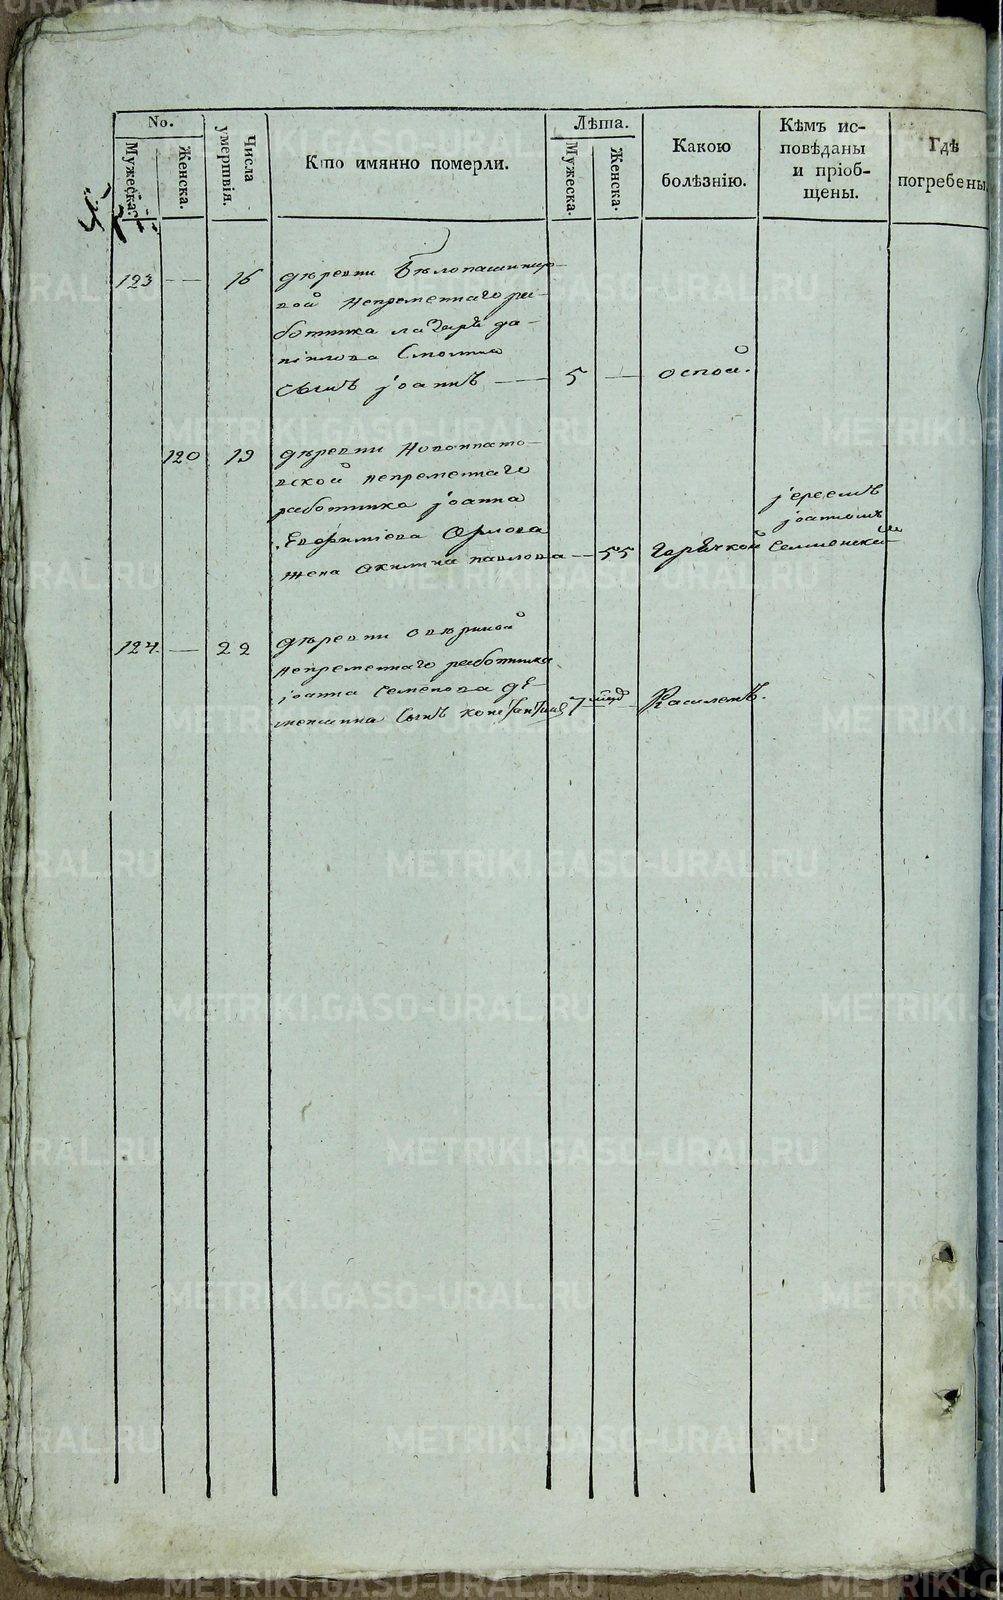 No.
Мужеска.
Женска.
Числа умертвія.
Кто имянно померли.
Лѣта.
Мужеска.
Женска.
Какою
болѣзнію.
Кѣмъ ис-
повѣданы
и пріоб-
щены.
Гдѣ
погребены.
123 — 16 деревни Бѣлопашинцо-
вой непременнаго ра-
ботника лазаря да-
нилова
сынъ іоаннъ — 5 — оспой.
120 19 деревни Новоипато-
вской непременнаго
работника іоанна
Евфиміева Орлова
жена Акилина павлова — 55 Горячкой
іереемъ
іоанномъ
124. — 22 деревни овериной
непременнаго работника
іоанна семенова де-
меншина сынъ константинъ 7 Кашлемъ.
METRIKI.GASO-URAL.RU